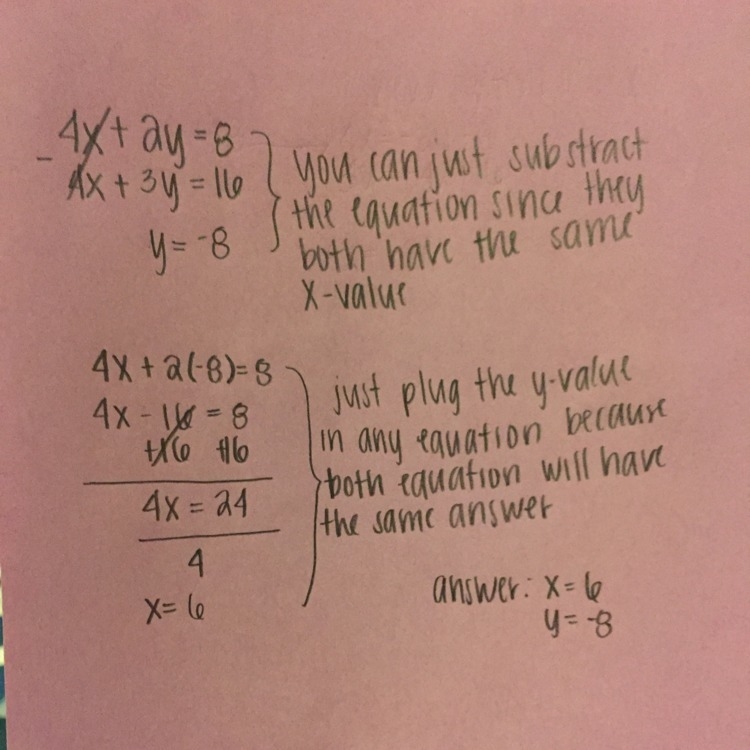 4x + 2y = 8
- 4x + 3y = 16
y = -8
you can just substract
the equation since they
both have the same
x-value
4x + 2(-8) = 8
4x - 16 = 8
+16 +16
4x = 24
4
x = 6
just plug the y-value
in any equation because
both equation will have
the same answer
answer: x = 6
y = -8